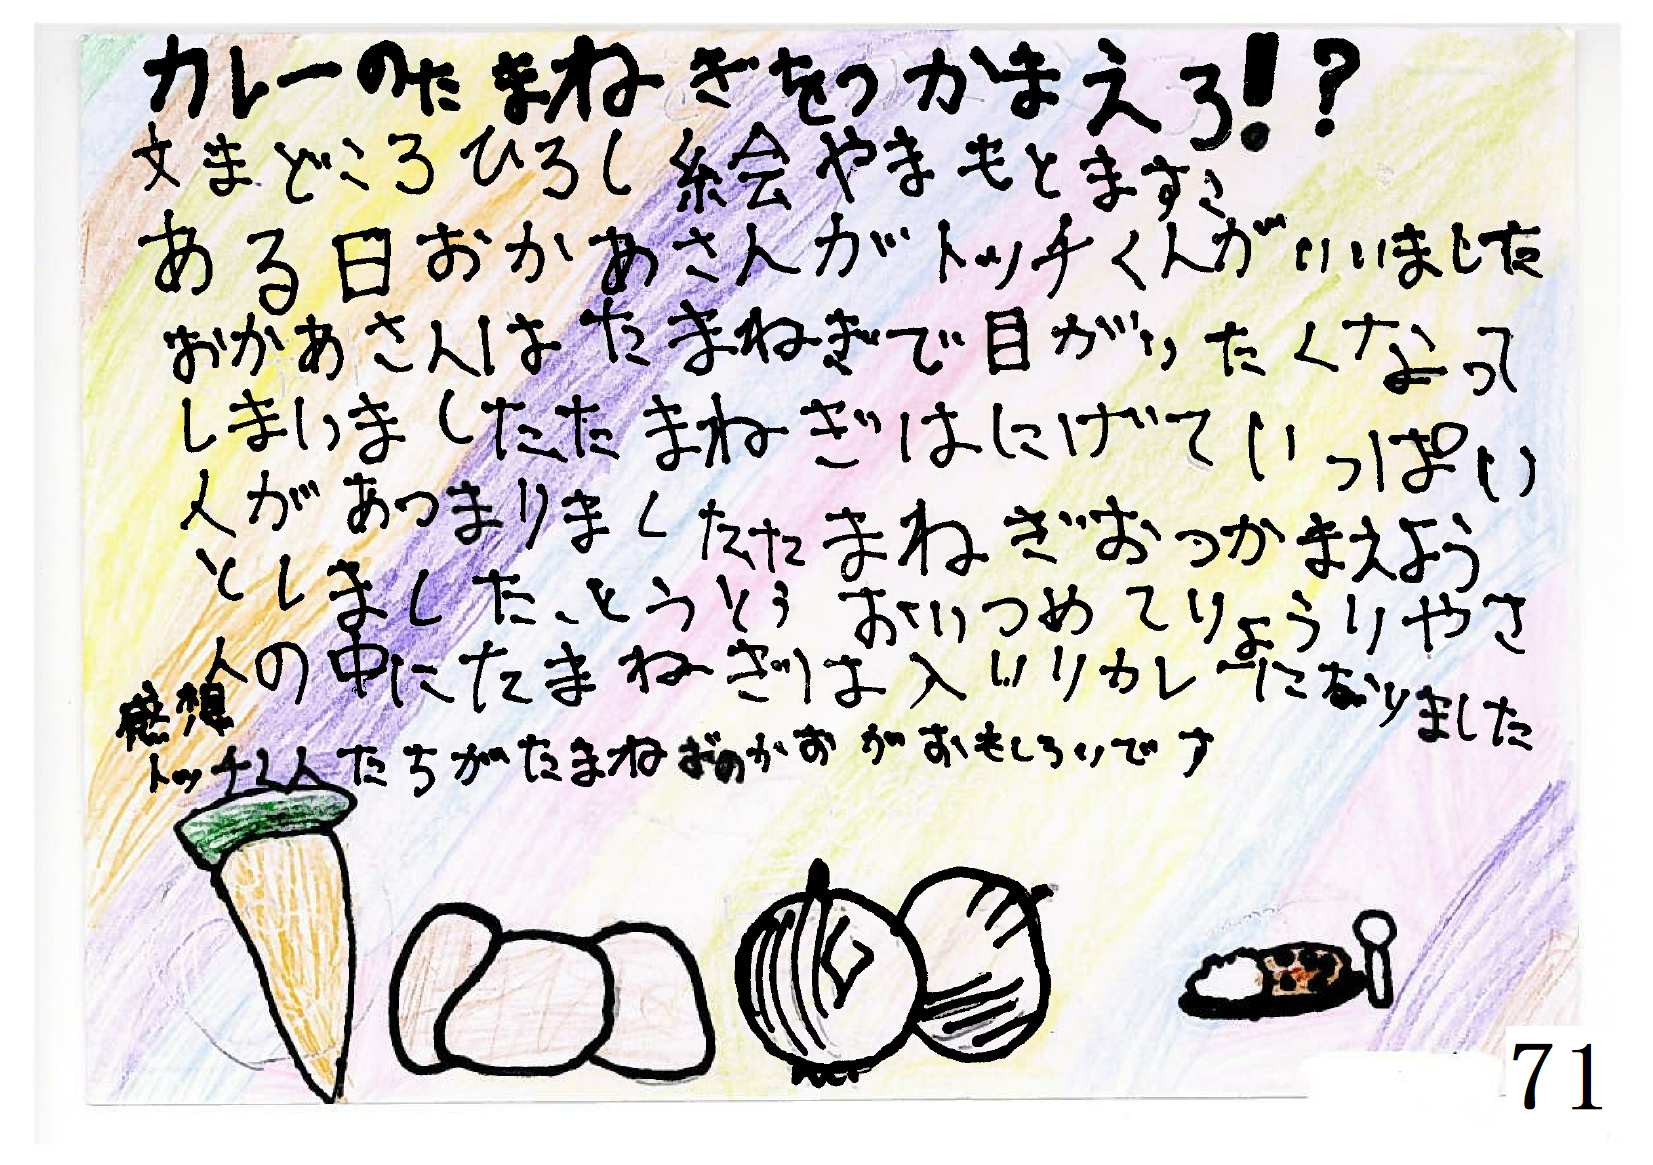 カレーのたまねぎをつかまえろ!?
文まどころひろし絵やまもとますこ
ある日おかあさんがトッチくんがいいました
おかあさんはたまねぎで目がいたくなって
しまいましたたまねぎはにげていっぱい
人があつまりましたたまねぎおつかまえよう
としました、とうとうおいつめてりょうりやさ
んの中にたまねぎは入いりカレーになりました
感想
トッチくんたちがたまねぎのかおがおもしろいです
71